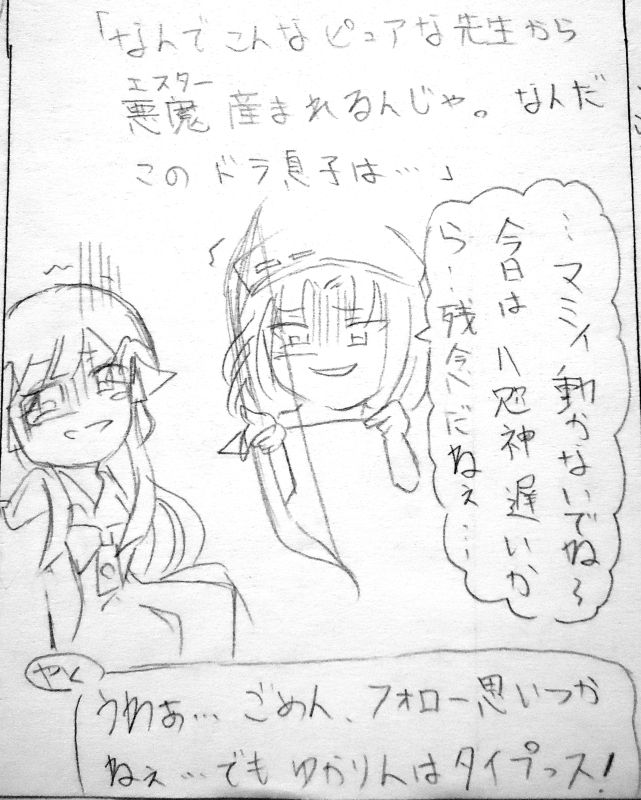 「なんでこんなピュアな先生から
エスター
悪魔 産まれるんじゃ。なんだ
このドラ息子は…」
…マミィ動かないでね～
今日は八 神遅いか
ら…残念だねぇ…
やく
うわぁ…ごめん、フォロー思いつか
ねぇ…でもゆかりんはタイプっス!